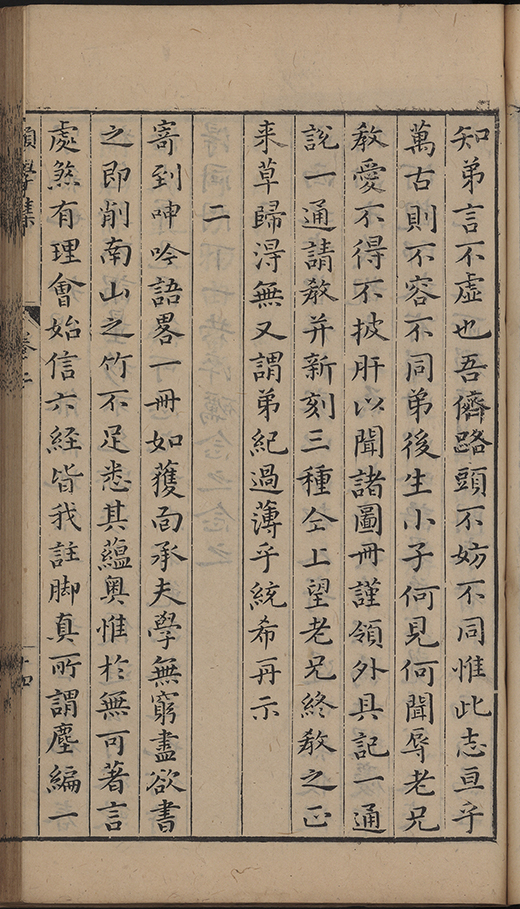 知弟言不虛也吾儕路頭不妨不同惟此志亘乎
萬古則不容不同弟後生小子何見何聞辱老兄
教愛不得不披肝以聞諸圖冊謹領外具記一通
說一通請教并新刻三種仝上望老兄終教之正
来草歸淂無又謂弟紀過薄乎統希再示
二
寄到呻吟語畧一冊如獲面承夫學無窮盡欲書
之即削南山之竹不足悉其蘊奥惟扵無可著言
處煞有理會始信六經皆我註脚真所謂塵編一
卷二
十四